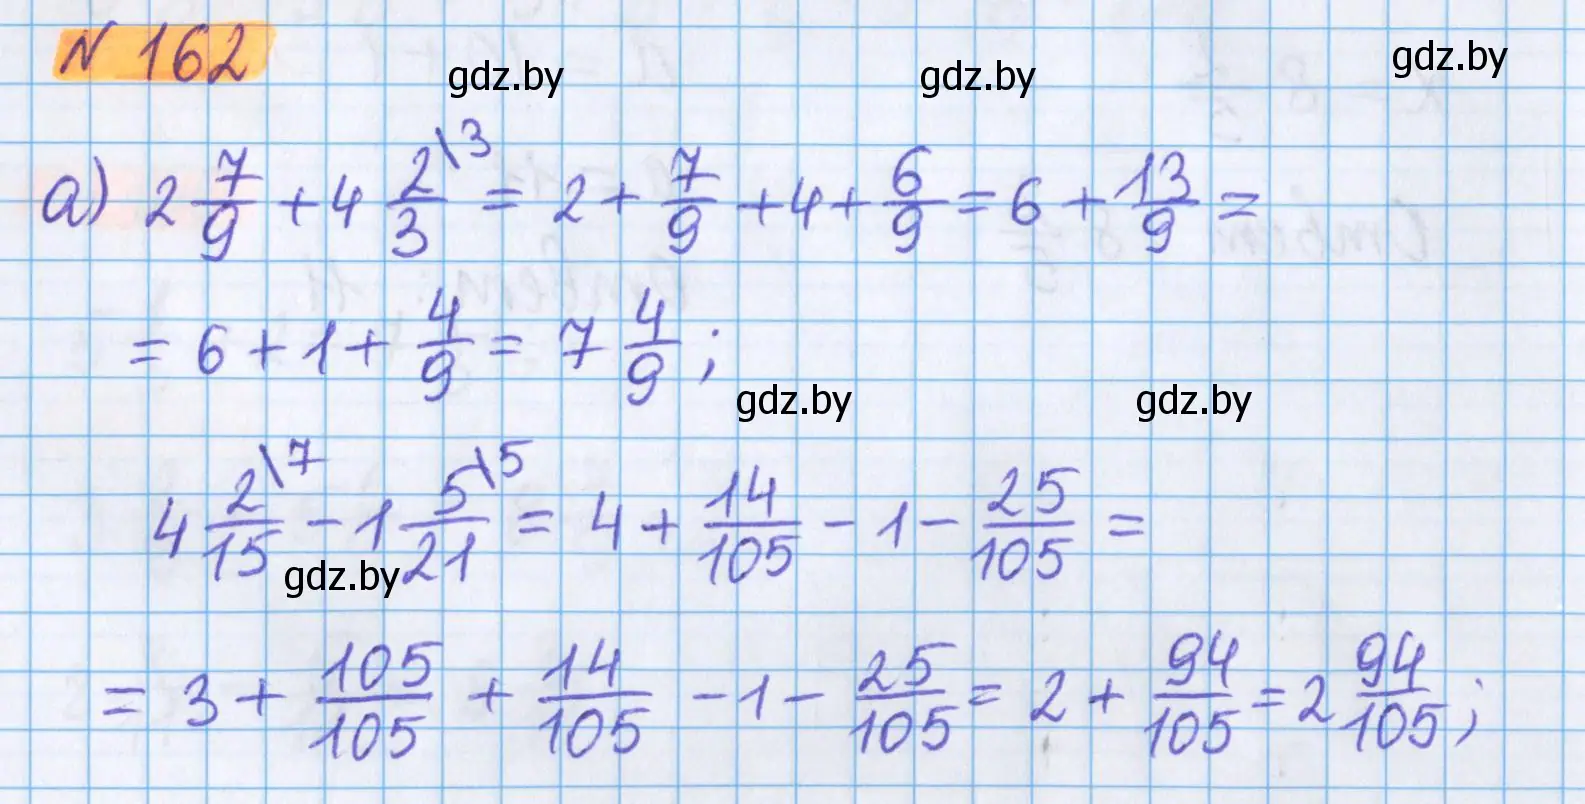 N 162
gdz.by gdz.by gdz.by
а) 2 7/9 + 4 2/3 \3 = 2 + 7/9 + 4 + 6/9 = 6 + 13/9 =
= 6 + 1 + 4/9 = 7 4/9 ;
gdz.by gdz.by
4 2/15 \7 - 1 5/21 \5 = 4 + 14/105 - 1 - 25/105 =
gdz.by
= 3 + 105/105 + 14/105 - 1 - 25/105 = 2 + 94/105 = 2 94/105 ;